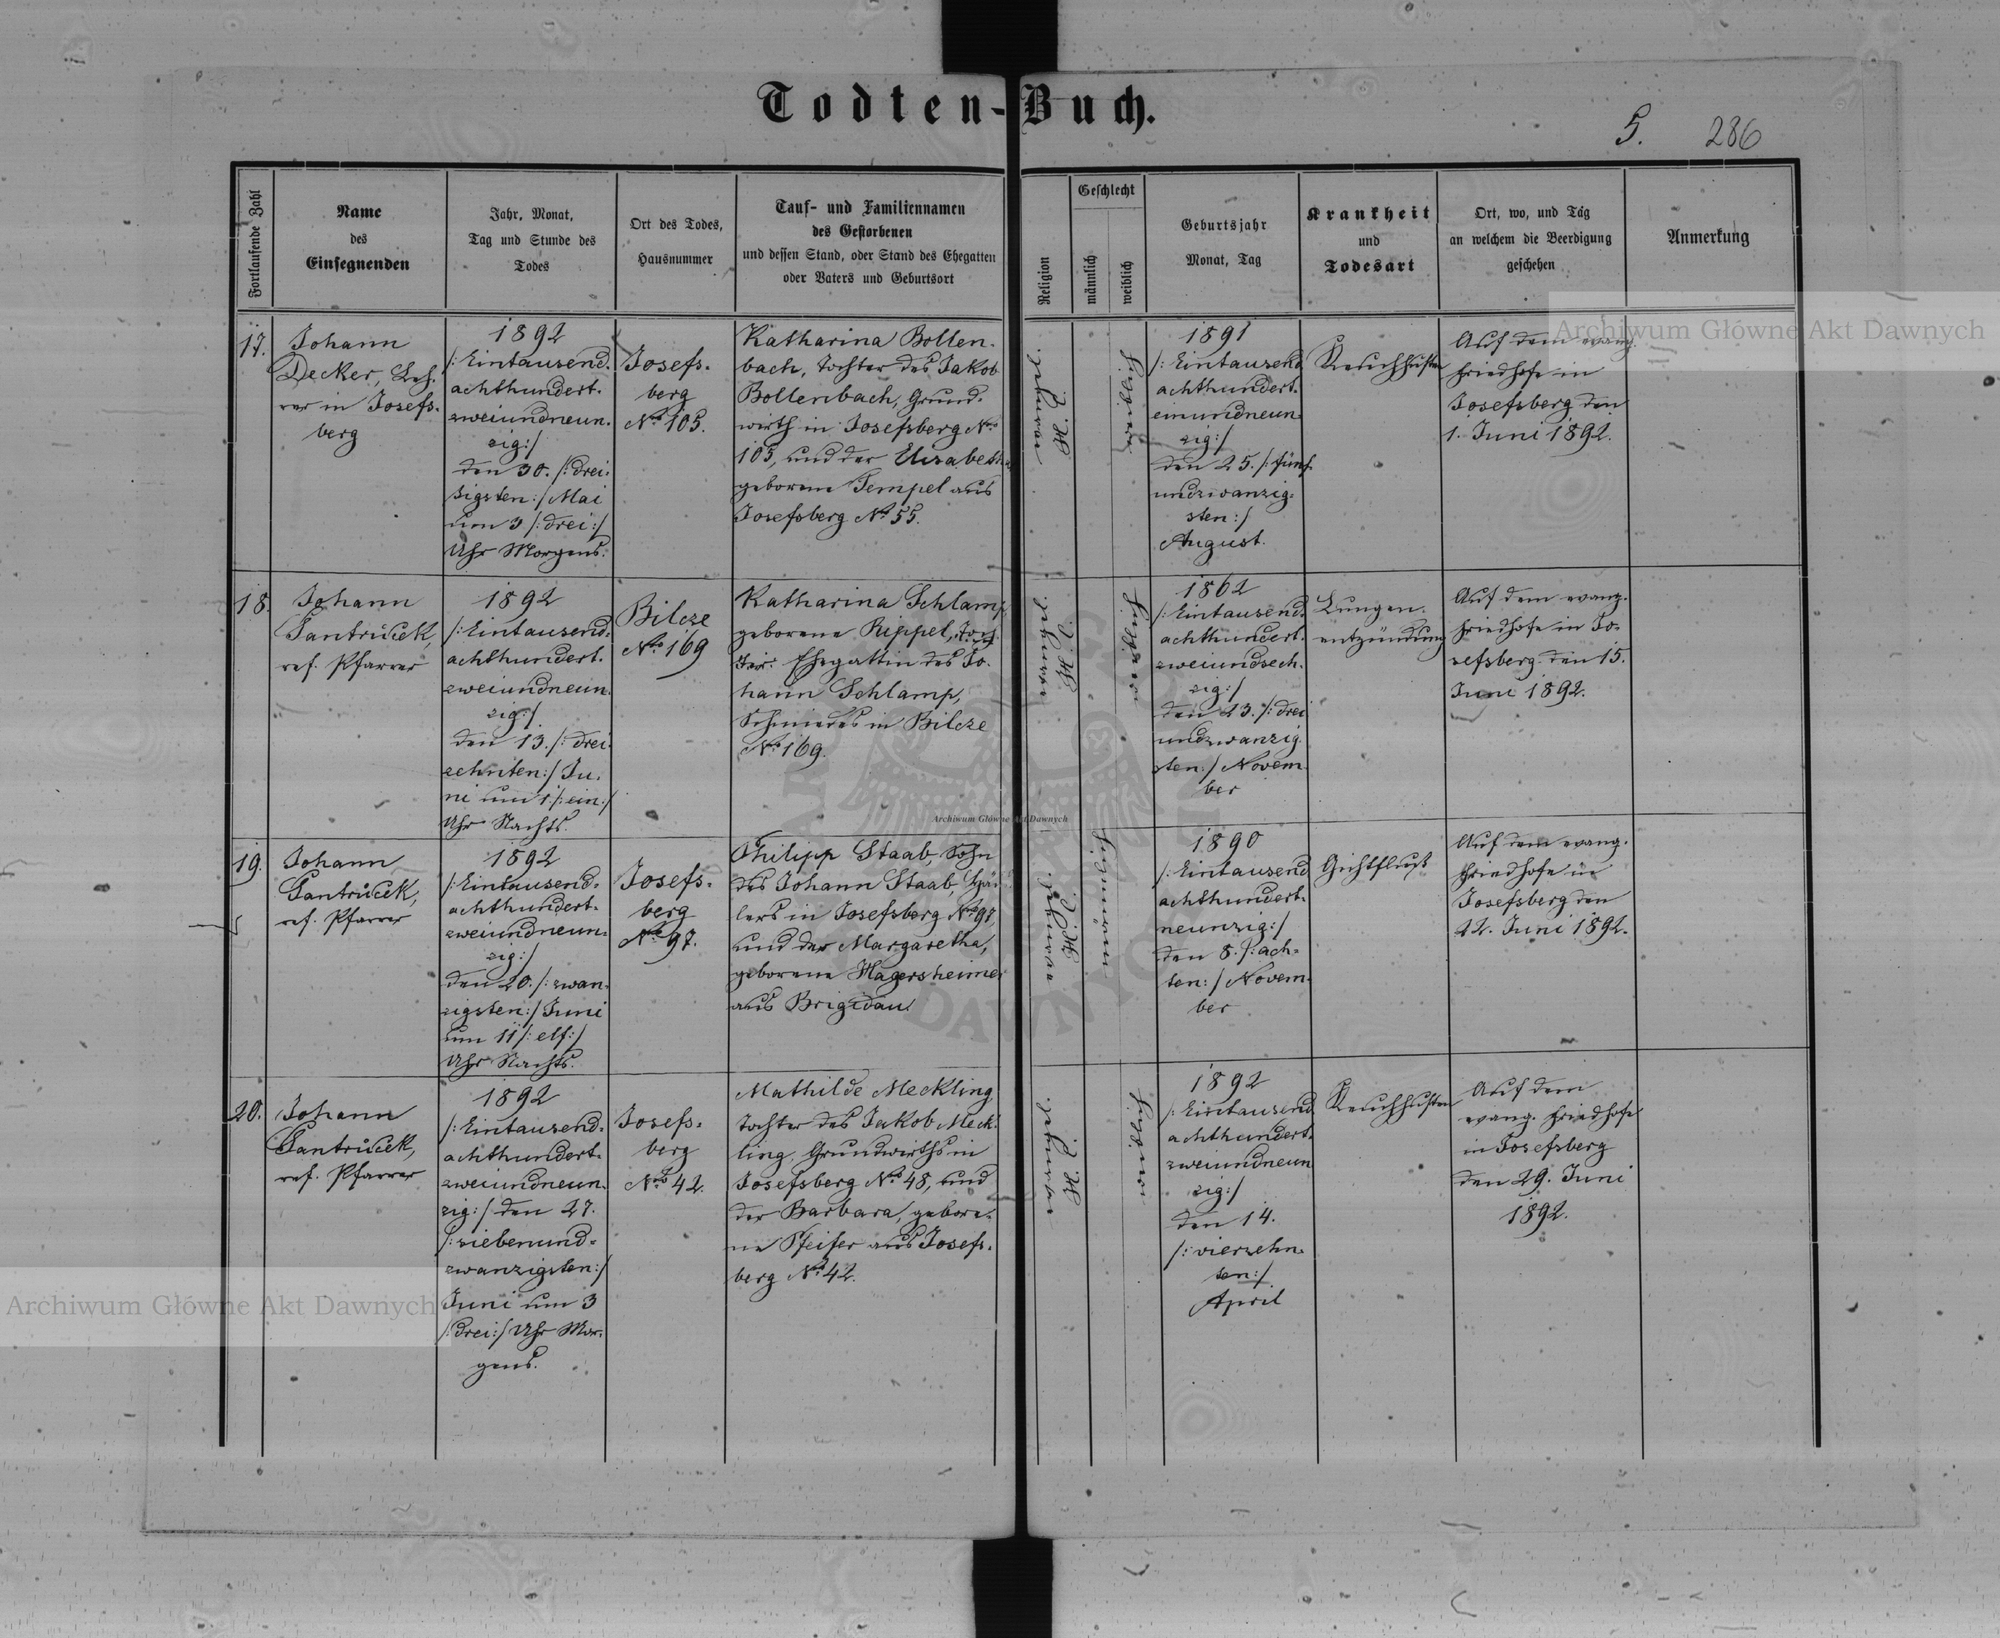 Todten-Buch.
5. 286
Fortlaufende Zahl
Name
des
Einsegnenden
Jahr, Monat,
Tag und Stunde des
Todes
Ort des Todes,
Hausnummer
Tauf- und Familiennamen
des Gestorbenen
und dessen Stand, oder Stand des Ehegatten
oder Vaters und Geburtsort
Religion
Geschlecht
männlich
weiblich
Geburtsjahr
Monat, Tag
Krankheit
und
Todesart
Ort, wo, und Tag
an welchem die Beerdigung
geschehen
Anmerkung
17.
Johann
Decker, Leh-
rer in Josefs-
berg
1892
/: Eintausend-
achthundert-
zweiundneun-
zig :/
den 30. /: drei-
sigsten :/ Mai
um 3 /: drei :/
Uhr Morgens.
Josefs-
berg
No 105.
Katharina Bollen-
bach, Tochter des Jakob
Bollenbach, Grund-
wirth in Josefsberg No
105, und der Elisabetha
geborene Tempel aus
Josefsberg No 55.
1891
/: Eintausend
achthundert-
einundneun-
zig :/
den 25. /: fünf-
undzwanzig-
sten :/
August.
Keuchhusten
Auf dem evang.
Friedhofe in
Josefsberg den
1. Juni 1892.
18.
Johann
Jantrůcek,
ref. Pfarrer
1892
/: Eintausend-
achthundert-
zweiundneun-
zig :/
den 13. /: drei-
zehnten :/ Ju-
ni um 1 /: ein :/
Uhr Nachts.
Bilcze
No 169
Katharina Schlamp
geborene Rippel,
Ehegattin des Jo-
hann Schlamp,
Schmiedes in Bilcze
No 169.
1862
/: Eintausend-
achthundert-
zweiundsech-
zig :/
den 23. /: drei
undzwanzig-
sten :/ Novem-
ber
Lungen-
entzündung
Auf dem evang.
Friedhofe in Jo-
sefsberg den 15.
Juni 1892.
19.
Johann
Jantrůcek,
ref. Pfarrer
1892
/: Eintausend-
achthundert-
zweiundneun-
zig :/
den 20. /: zwan-
zigsten :/ Juni
um 11 /: elf :/
Uhr Nachts.
Josefs-
berg
No 97.
Philipp Staab, Sohn
des Johann Staab,
lers in Josefsberg No 97,
und der Margaretha,
geborene Hagersheimer
aus Brigidau
1890
/: Eintausend
achthundert-
neunzig :/
den 8. /: ach-
ten :/ Novem-
ber
Gichtfluß
Auf dem evang.
Friedhofe in
Josefsberg den
22. Juni 1892.
20.
Johann
Jantrůcek,
ref. Pfarrer
1892
/: Eintausend-
achthundert-
zweiundneun-
zig :/ den 27.
/: siebenund-
zwanzigsten :/
Juni um 3
/: drei :/ Uhr Mor-
gens.
Josefs-
berg
No 42.
Mathilde Meckling
Tochter des Jakob Meck-
ling, Grundwirths in
Josefsberg No 48, und
der Barbara, gebore-
ne Pfeifer aus Josefs-
berg No 42.
1892
/: Eintausend
achthundert-
zweiundneun
zig :/
den 14.
/: vierzehn-
ten :/
April
Keuchhusten
Auf dem
evang. Friedhofe
in Josefsberg
den 29. Juni
1892.
Archiwum Główne Akt Dawnych
Archiwum Główne Akt Dawnych
Archiwum Główne Akt Dawnych